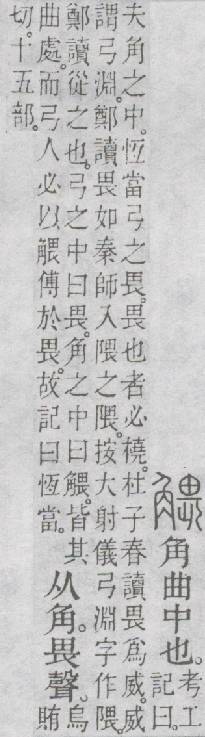 角曲中也。考工
記曰。
夫角之中。恆當弓之畏。畏也者必橈。杜子春讀畏爲威。威
謂弓淵。鄭讀畏如秦師入隈之隈。按大射儀弓淵字作隈。
鄭讀從之也。弓之中曰畏。角之中曰。皆其
曲處。而弓人必以傅於畏。故記曰恆當。
从角。畏聲。烏
賄
切。十五部。